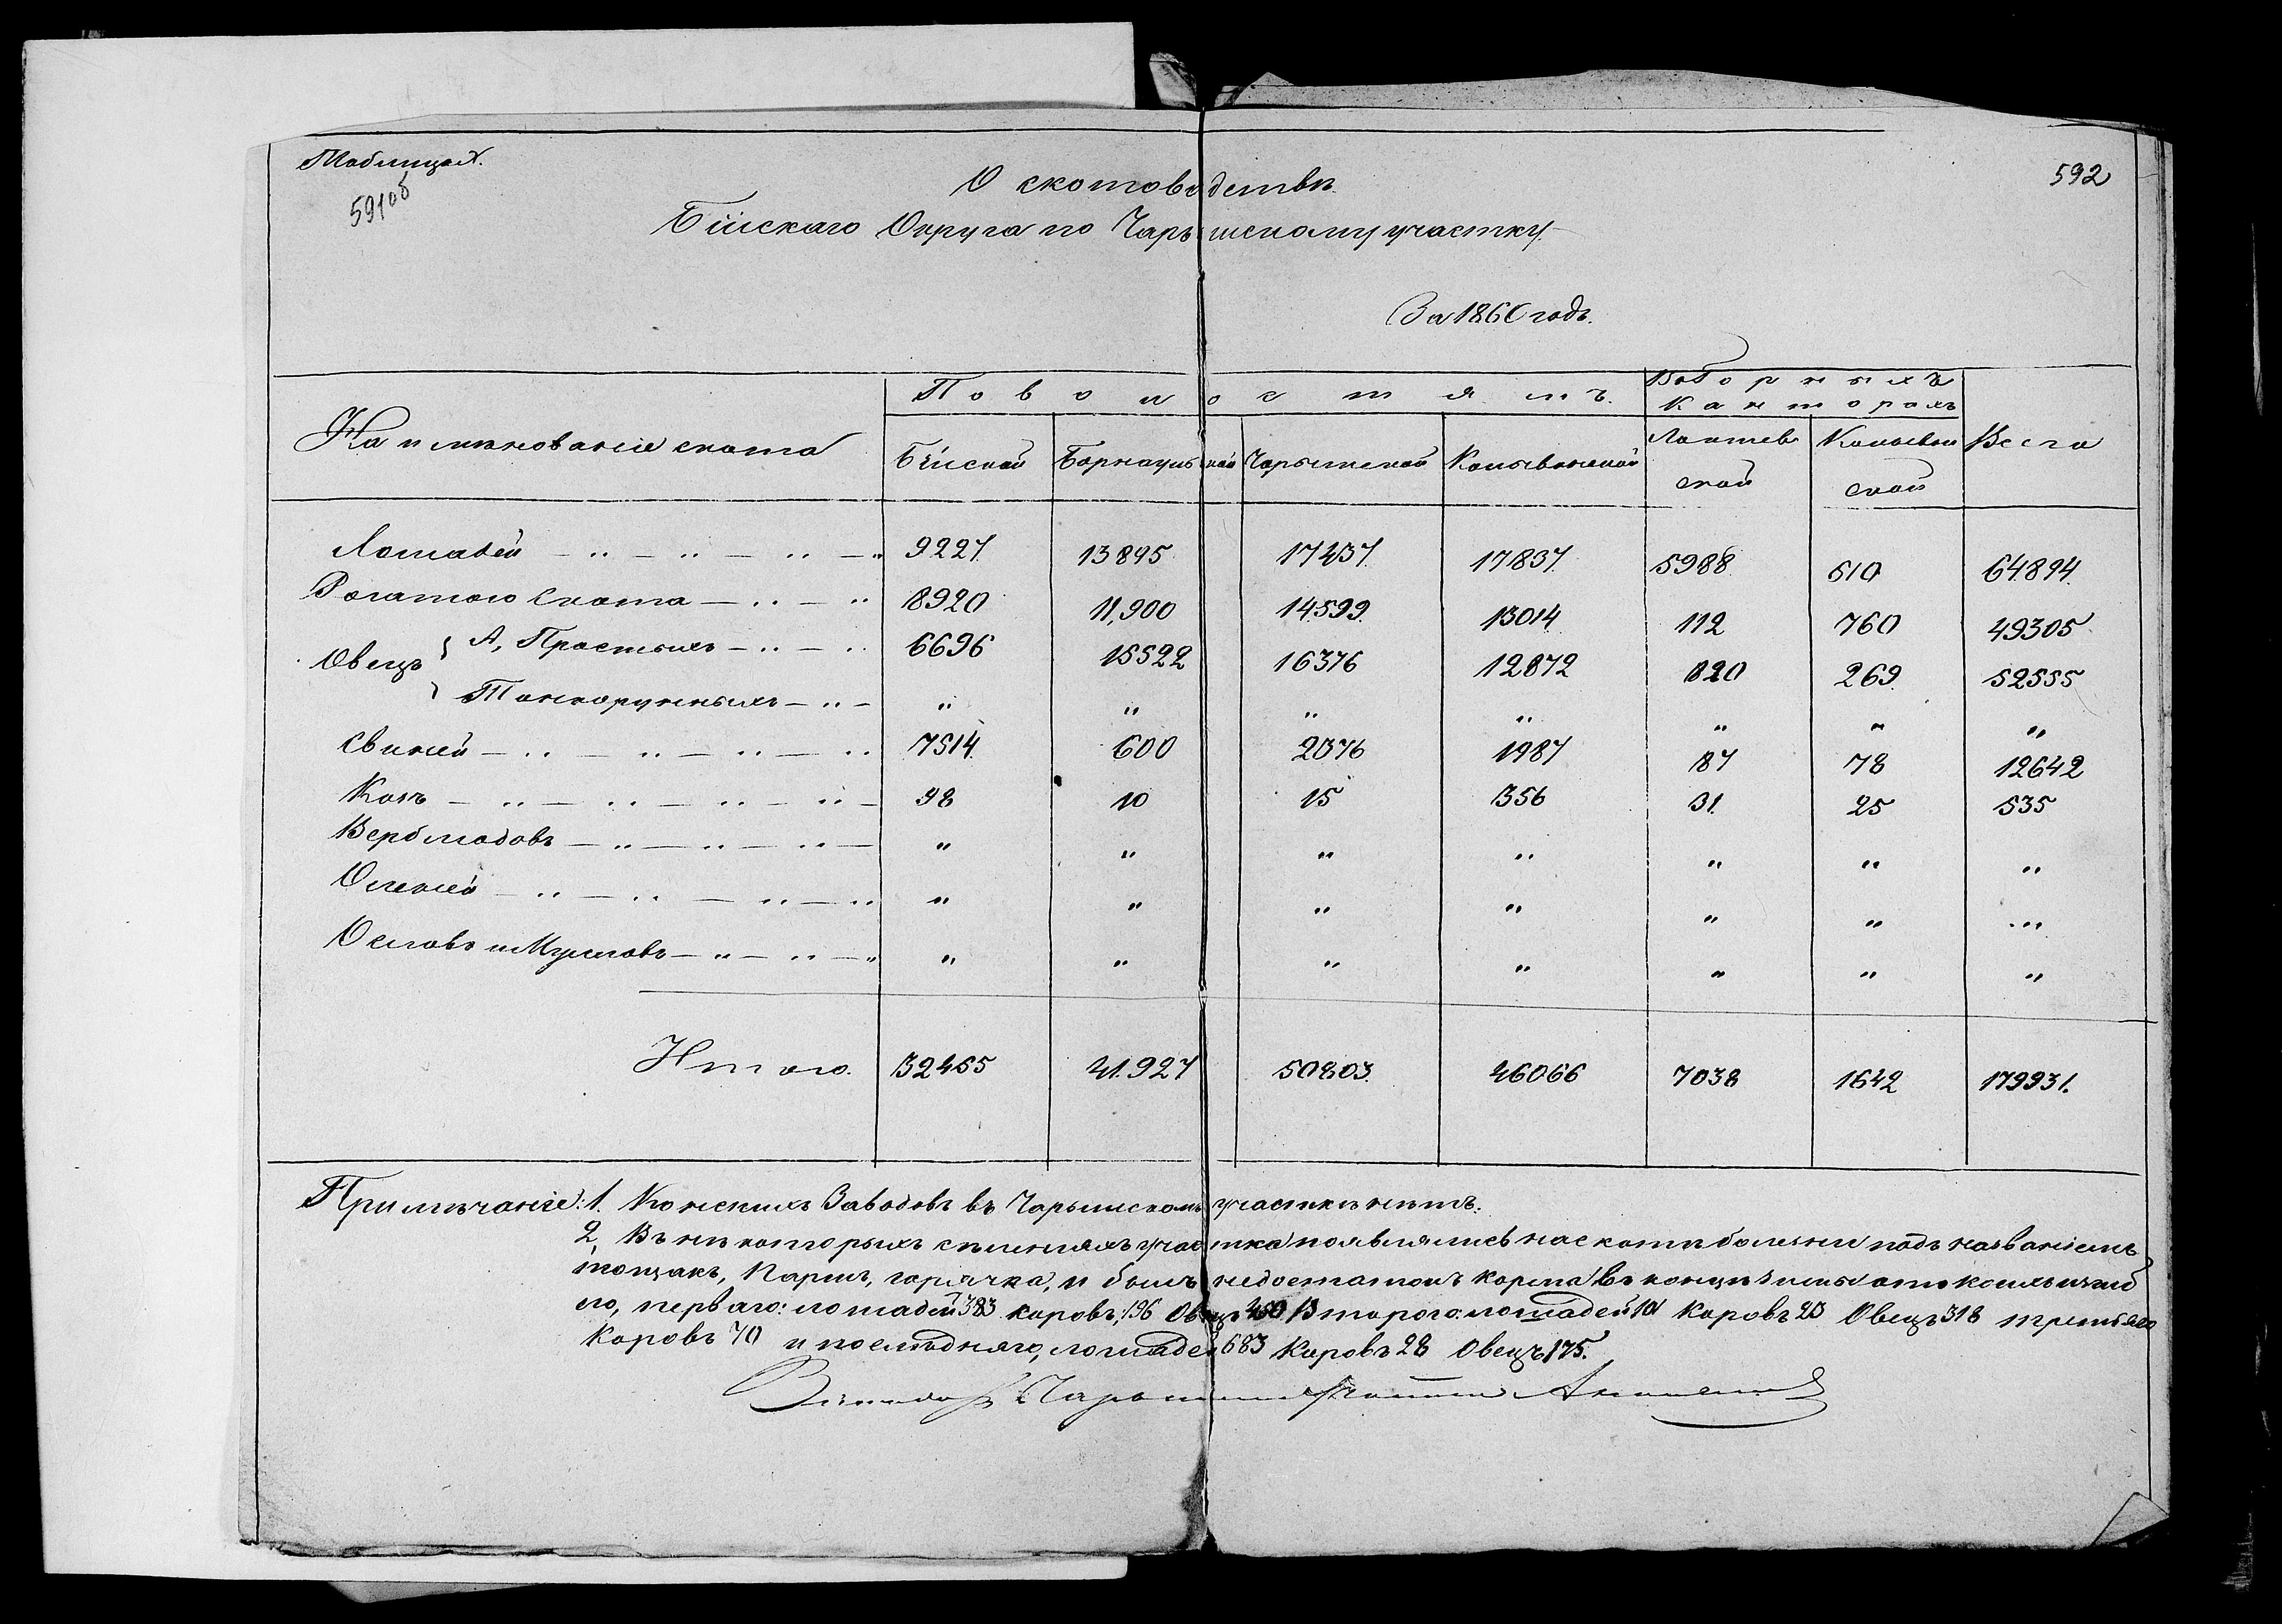 Таблица X.
591об
592
О скотоводствѣ
Бійскаго Округа по Чарышскому участку.
За 1860 годъ.
Наименованіе скота
По волостямъ.
Въ Горныхъ Канторахъ
Всего
Бійской Барнаульской Чарышской Колыванской Локтевской Колыванской
Лошадей 9227. 13895 17437. 17837. 5988 510 64894.
Рогатого Скота 8920 11,900 14599. 13014 112 760 49305.
Овецъ А, Простыхъ 6696 15522 16376 12872 820 269. 52555
Тонкорунныхъ " " " " " " "
Свиней 7514. 600 2376 1987 87 78 12642
Козъ 98 10 15 356 31. 25 535
Верблюдовъ " " " " " " "
Оленей " " " " " " "
Ословъ и Муловъ " " " " " " "
Итого. 32455 41.927 50803. 46066 7038 1642 179931.
Примѣчаніе: 1. Конскихъ Заводовъ въ Чарышскомъ участкѣ нѣтъ.
2, Въ нѣкоторыхъ селеніяхъ участка появлялись на скотѣ болезни подъ названіемъ
тощакъ, Паршъ, горячка, и былъ недостатокъ корма въ концѣ зимы отъ коихъ
его, перваго: лошадей 383 коровъ, 196 Овецъ 450 Второго: лошадей 101 Коровъ 23 Овецъ 318 третьяго
Коровъ 70 и последняго, лошадей 683 Коровъ 28 Овецъ 175.